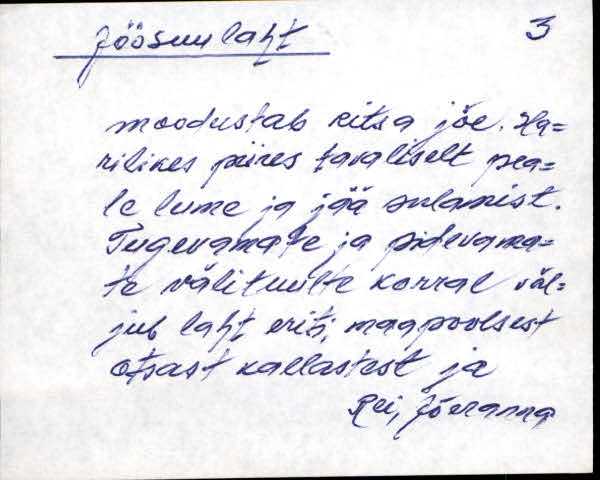 Jõesuu laht 3
moodustab kitsa jõe. Ha=
rilikes piires tavaliselt pea=
le lume ja jää sulamist.
Tugevamate ja pidevama=
te välituulte korral väl=
jub laht eriti, maapoolsest
otsast kallastest ja
Rei, Jõeranna